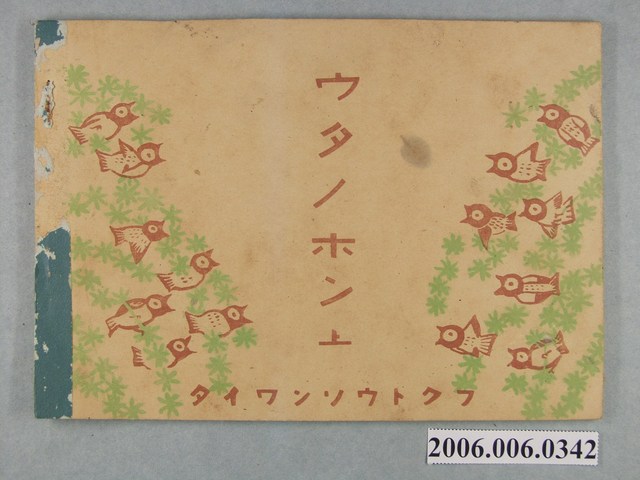 ウタノホン上
タイワンソウトクフ
2006.006.0342